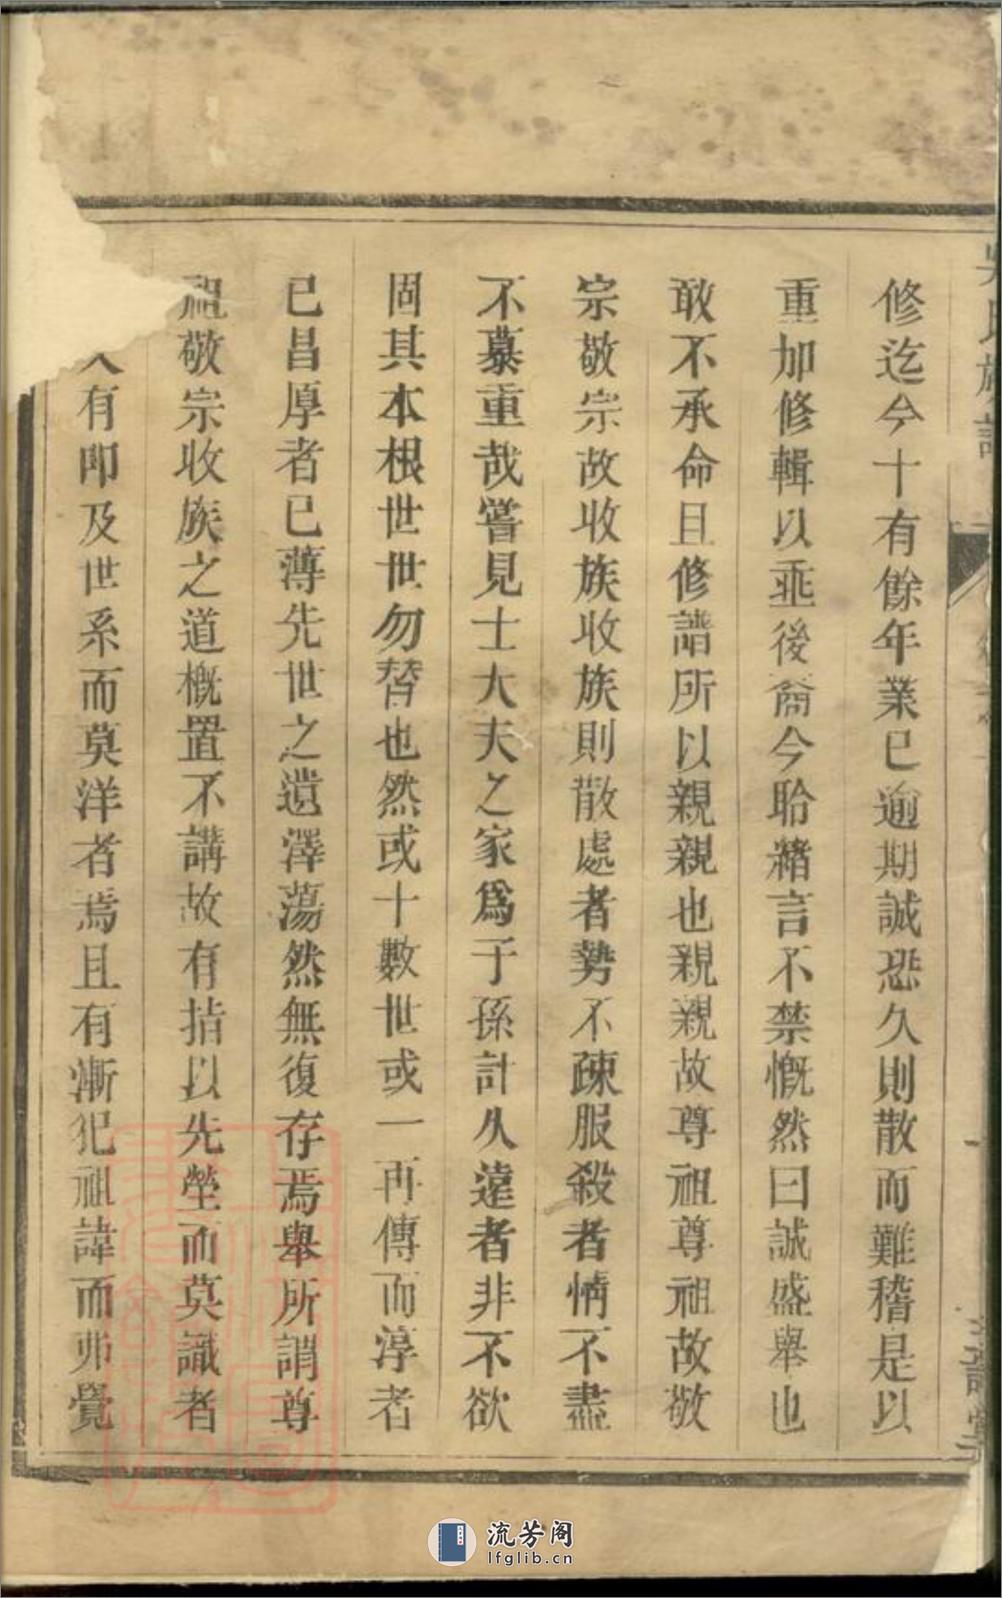 修迄今十有餘年業已逾期誠恐久則散而難稽是以
重加修輯以垂後裔今聆緒言不禁慨然曰誠盛舉也
敢不承命且修譜所以親親也親親故尊祖尊祖故敬
宗敬宗故收族收族則散處者勢不疎服殺者情不盡
不綦重哉嘗見士大夫之家爲子孫計久遠者非不欲
固其本根世世勿替也然或十數世或一再傳而淳者
已昌厚者已薄先世之遺澤蕩然無復存焉舉所謂尊
祖敬宗收族之道概置不講故有指以先塋而莫識者
有叩及世系而莫詳者焉且有漸犯祖諱而弗覺
氏族譜
流芳阁
lfglib.cn